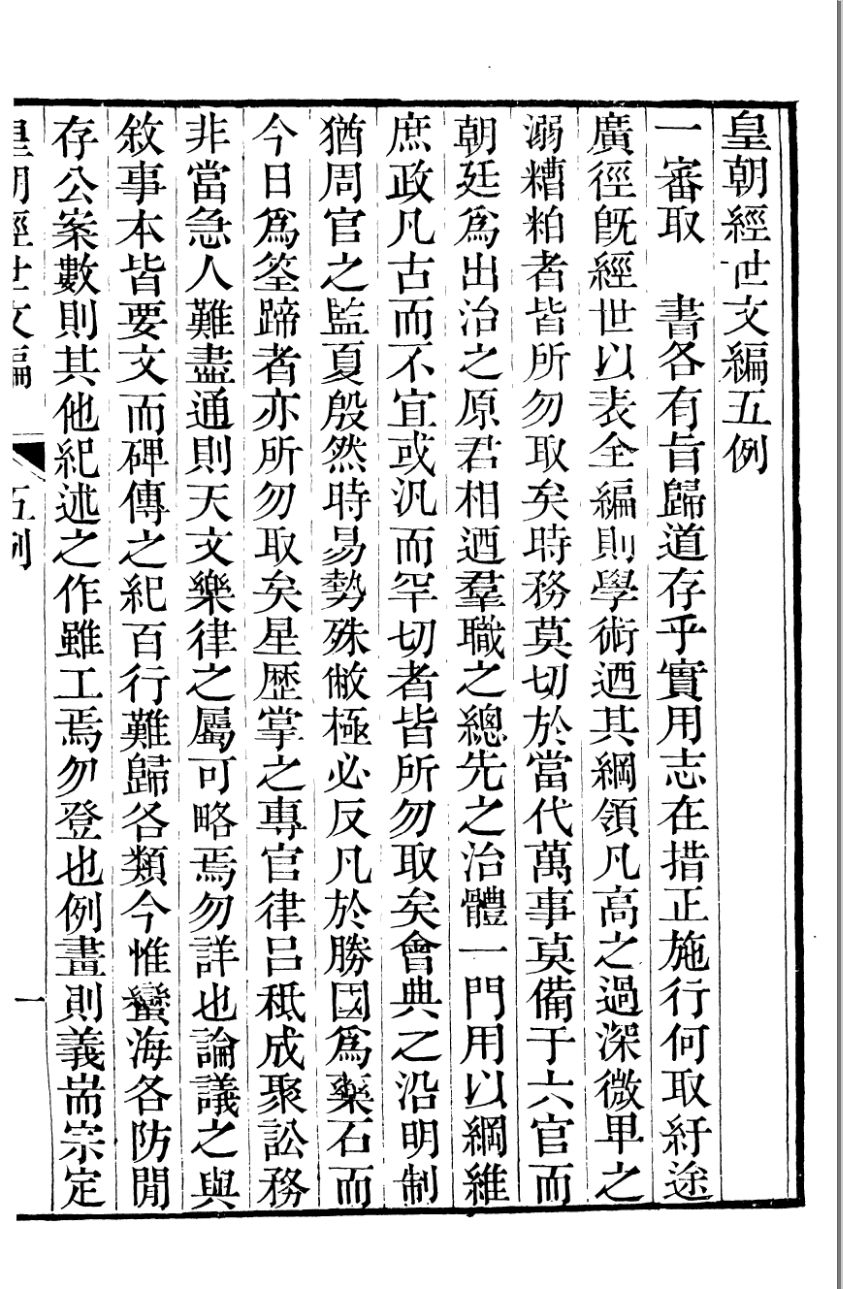 皇朝經世文編五例
一審取　書各有旨歸道存乎實用志在措正施行何取紆途
廣徑旣經世以表全編則學術迺其綱領凡高之過深微卑之
溺糟粕者皆所勿取矣時務莫切於當代萬事莫備于六官而
朝廷爲出治之原君相迺羣職之總先之治體一門用以綱維
庶政凡古而不宜或汎而罕切者皆所勿取矣會典之沿明制
猶周官之監夏殷然時易勢殊敝極必反凡於勝國爲藥石而
今日爲筌蹄者亦所勿取矣星歷掌之專官律呂秪成聚訟務
非當急人難盡通則天文樂律之屬可略焉勿詳也論議之與
敘事本皆要文而碑傳之紀百行難歸各類今惟蠻海各防閒
存公案數則其他紀述之作雖工焉勿登也例畫則義耑宗定
皇朝經世文編　五例　一